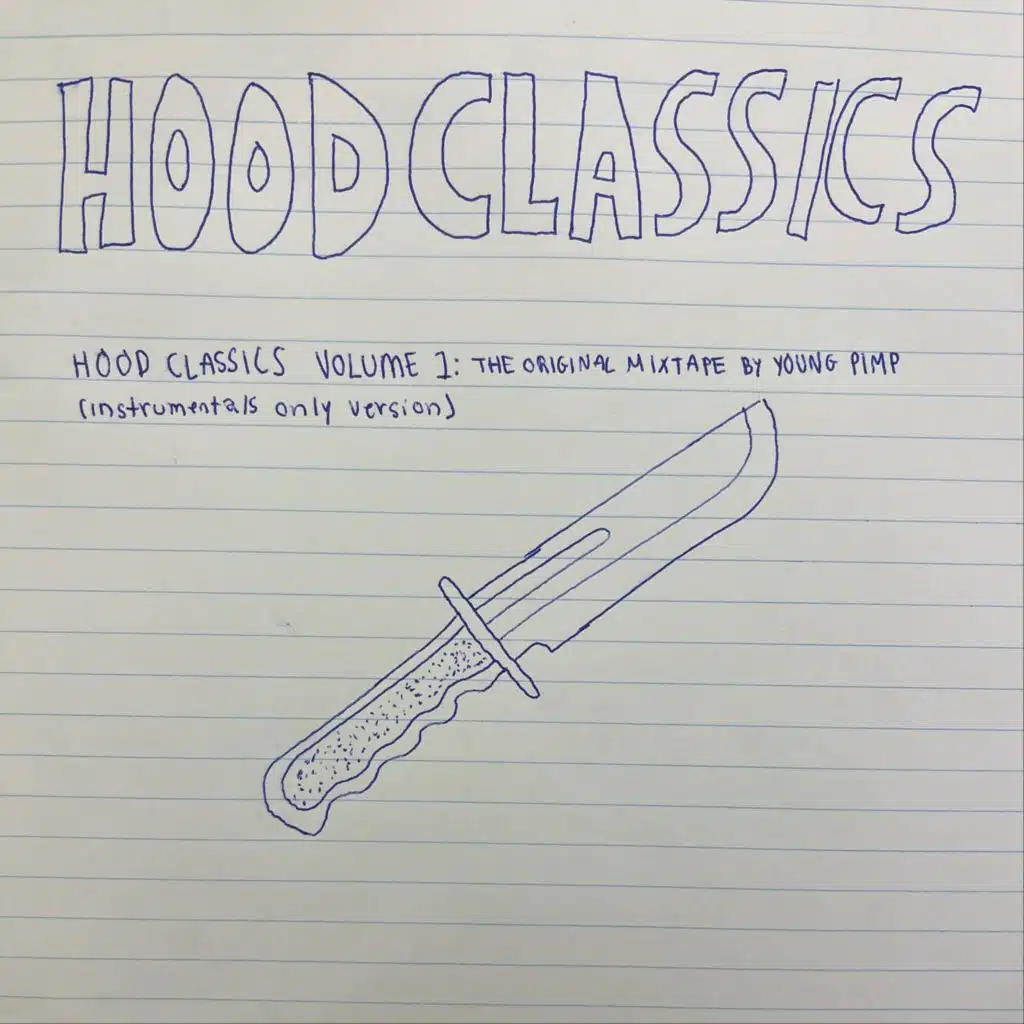 HOOD CLASSICS
HOOD CLASSICS VOLUME 1: THE ORIGINAL MIXTAPE BY YOUNG PIMP
(instrumentals only version)